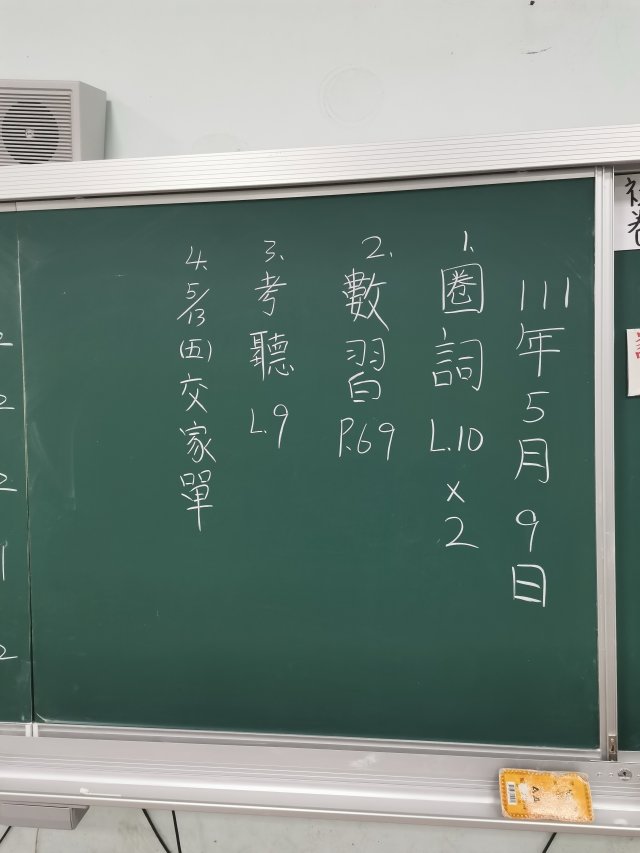 111年5月9日
1.圈詞L.10×2
2.數習P.69
3.考聽L.9
4.5/13(五)交家單